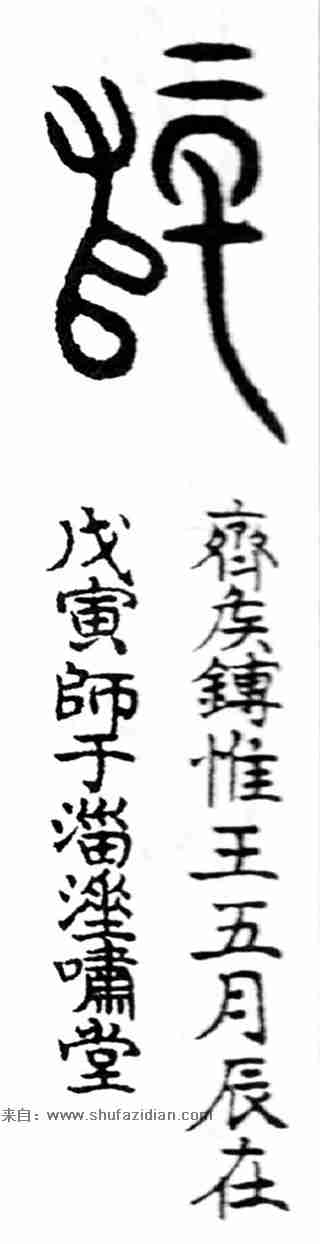 齊矦鎛惟王五月辰在
戊寅師于淄涶嘯堂
来自：www.shufazidian.com